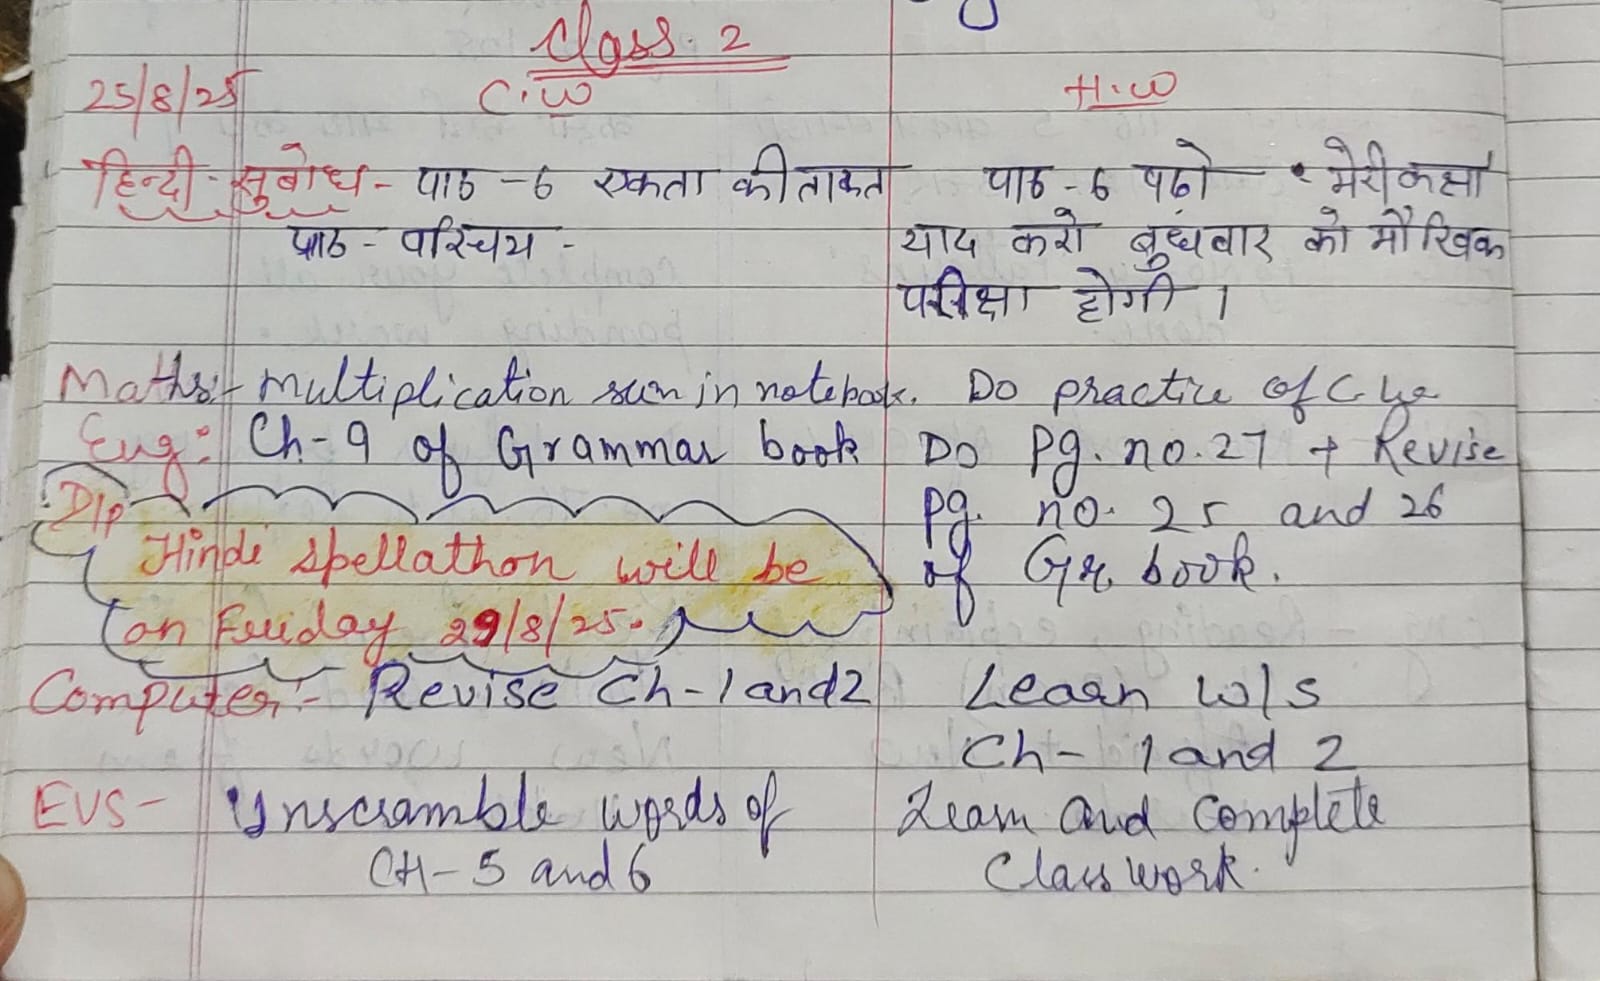 Class. 2
25/8/25 C.W H.W
हिन्दी - सुबोध - पाठ - 6 एकता की ताकत पाठ - 6 पढो • मेरी कक्षा
पाठ - परिचय - याद करो बुधवार को मौखिक
परीक्षा होगी ।
Maths:- Multiplication sum in notebook. Do practice of C.
Eng: Ch-9 of Grammar book Do Pg. no. 27 + Revise
Pg. no. 25 and 26
of Gr. book.
D/p
Hindi Spellathon will be
on Friday 29/8/25.
Computer:- Revise Ch-1 and 2 Learn W/S
Ch- 1 and 2
EVS- Unscramble words of Learn and Complete
CH-5 and 6 Class work.